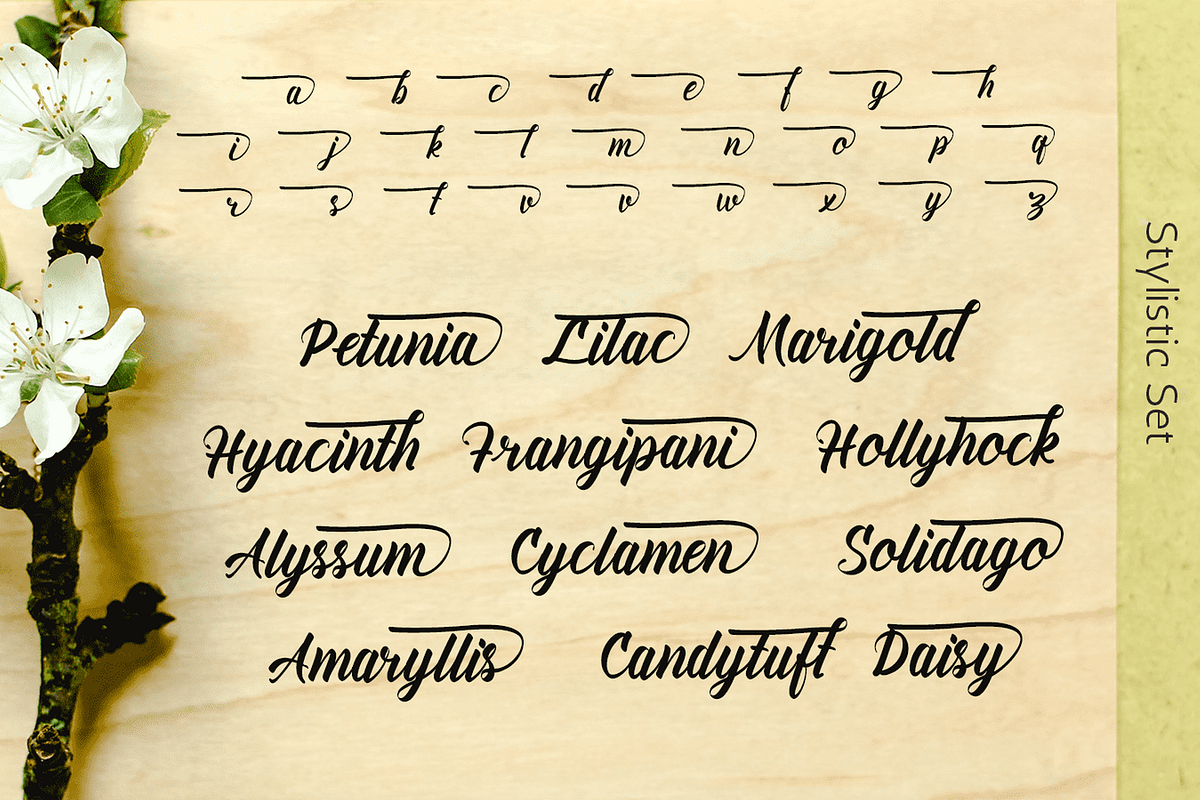 a b c d e f g h
i j k l m n o p q
r s t v v w x y z
Petunia Lilac Marigold
Hyacinth Frangipani Hollyhock
Alyssum Cyclamen Solidago
Amaryllis Candytuft Daisy
Stylistic Set